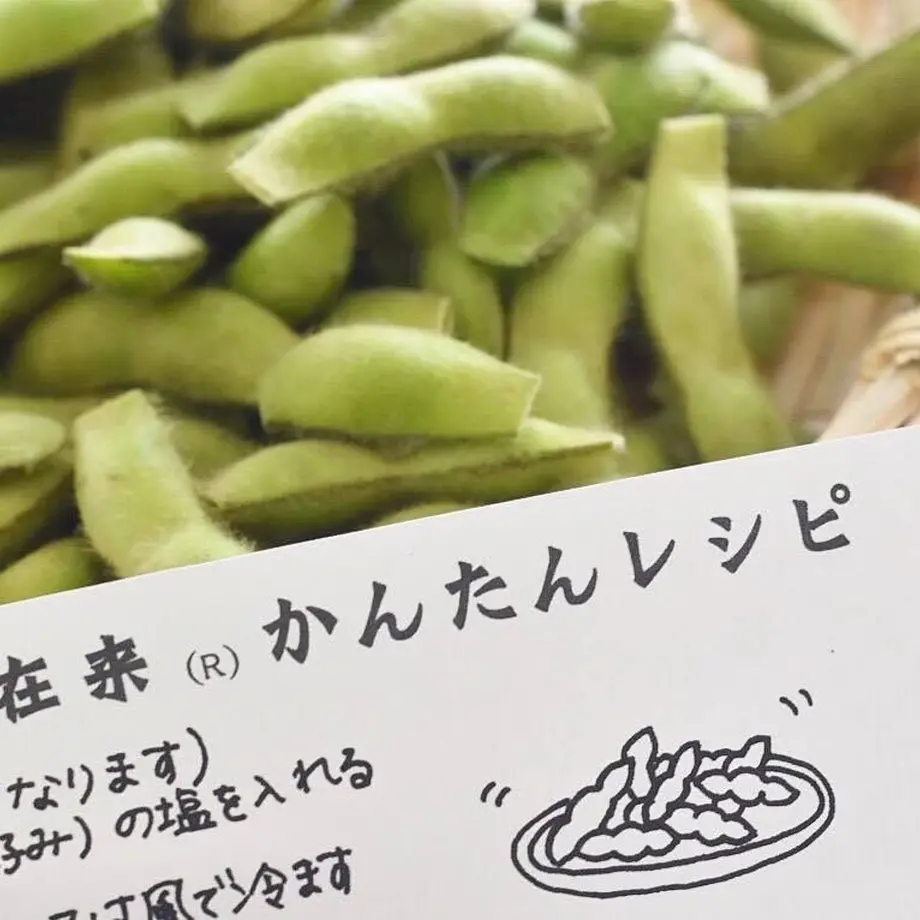 在来(R)かんたんレシピ
なります)
好み)の塩を入れる
風で冷ます